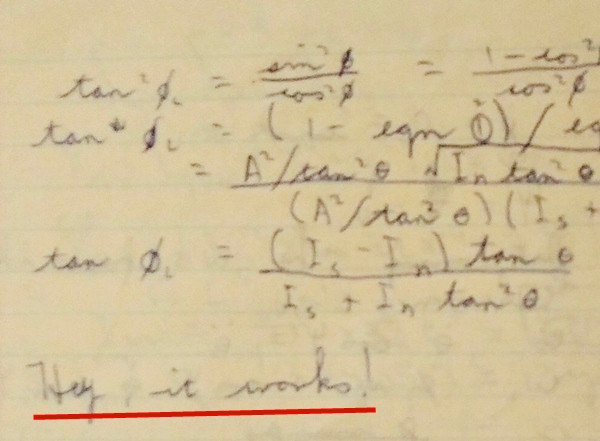 tan² φ꜀ = sin² φ / cos² φ = 1 - cos² / cos² φ
tan² φ꜀ = (1 - eqn ①) / eq
= A²/tan² θ √ I_n tan² θ / (A²/tan² θ) (I_s +
tan φ꜀ = (I_s - I_n) tan θ / I_s + I_n tan² θ
Hey, it works!